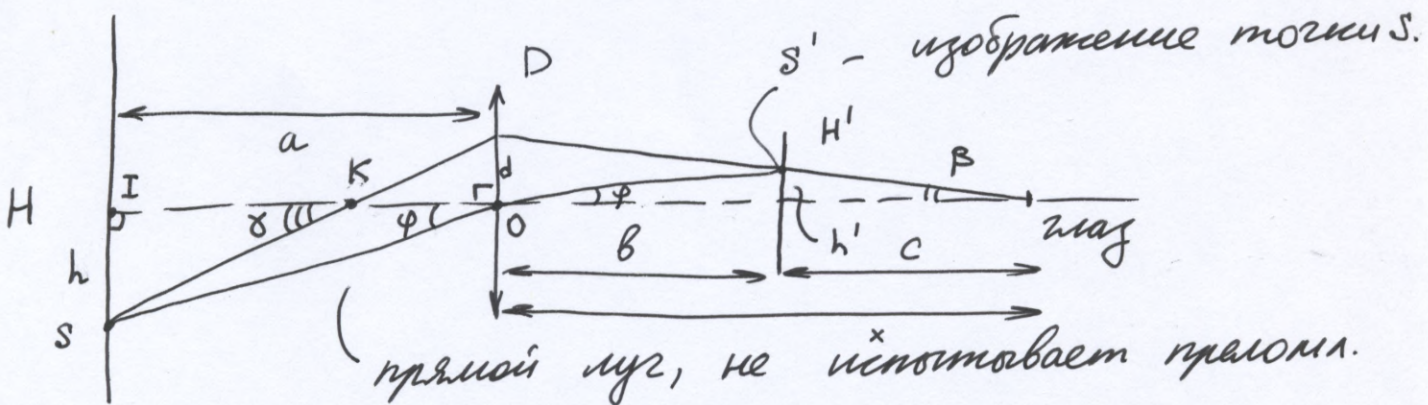 S' - изображение точки S.
D
a
H'
H
I
K
d
β
γ
φ
Г
O
φ
h'
глаз
h
в
c
S
x
прямой луч, не испытывает преломл.